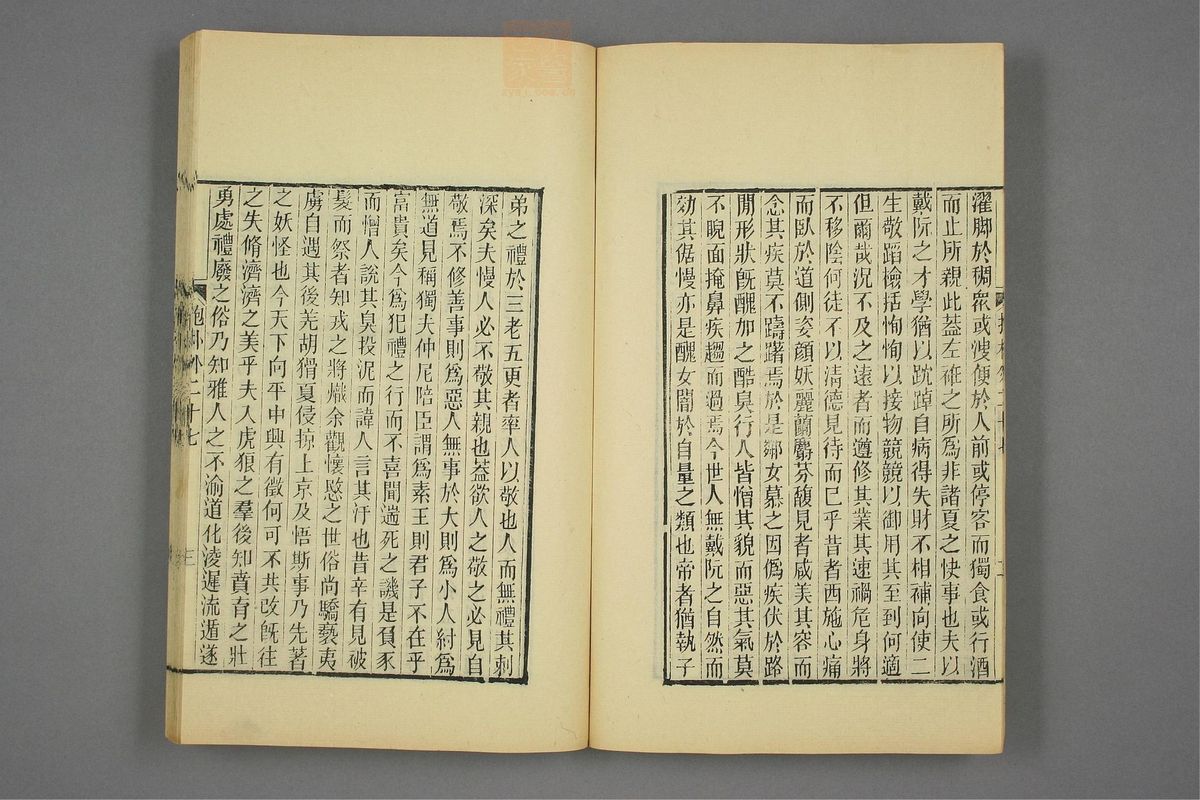 濯脚於稠衆或溲便於人前或停客而獨食或行酒
而止所親此葢左衽之所爲非諸夏之快事也夫以
戴阮之才學猶以跅踔自病得失財不相補向使二
生敬蹈檢括恂恂以接物競競以御用其至到何適
但爾哉況不及之遠者而遵修其業其速禍危身將
不移陰何徒不以清德見待而已乎昔者西施心痛
而臥於道側姿顏妖麗蘭麝芬馥見者咸美其容而
念其疾莫不躊躇焉於是鄰女慕之因僞疾伏於路
閒形狀旣醜加之酷臭行人皆憎其貌而惡其氣莫
不睨面掩鼻疾趨而過焉今世人無戴阮之自然而
効其倨慢亦是醜女闇於自量之類也帝者猶執子
弟之禮於三老五更者率人以敬也人而無禮其刺
深矣夫慢人必不敬其親也葢欲人之敬之必見自
敬焉不修善事則爲惡人無事於大則爲小人紂爲
無道見稱獨夫仲尼陪臣謂爲素王則君子不在乎
富貴矣今爲犯禮之行而不喜聞遄死之譏是負豕
而憎人說其臭投泥而諱人言其汙也昔辛有見被
髮而祭者知戎之將熾余觀懷愍之世俗尚驕褻夷
虜自遇其後羌胡猾夏侵掠上京及悟斯事乃先著
之妖怪也今天下向平中興有徵何可不共改旣往
之失脩濟濟之美乎夫入虎狼之羣後知賁育之壯
勇處禮廢之俗乃知雅人之不渝道化淩遲流遁遂
抱朴外二十七
三